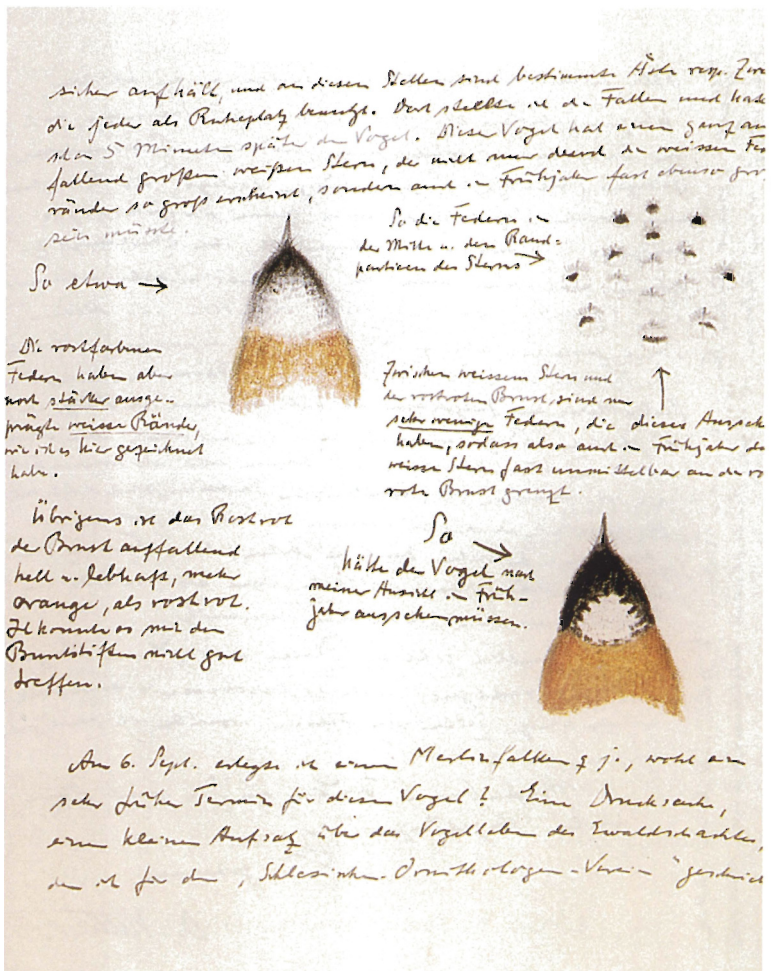 sicher aufhält, und an diesen Stellen sind bestimmte Äste resp. Zwe
die jeder als Ruheplatz benutzt. Dort stellte ich die Fallen und hatte
schon 5 Minuten später den Vogel. Dieser Vogel hat einen ganz auf
fallend großen weißen Stern, der nicht nur durch die weissen Fe
ränder so groß erscheint, sondern auch im Frühjahr fast ebenso gro
sein müsste.
So die Federn in
der Mitte u. den Rand-
partieen des Sterns →
So etwa →
Die rostfarbenen
Federn haben aber
noch stärker ausge-
prägte weisse Ränder,
wie ich es hier gezeichnet
habe.
Zwischen weissem Stern und
der rostroten Brust, sind nur
sehr wenige Federn, die dieses Ausseh
haben, sodass also auch im Frühjahr de
weisse Stern fast unmittelbar an die ro
rote Brust grenzt.
Übrigens ist das Rostrot
der Brust auffallend
hell u. lebhaft, mehr
orange, als rostrot.
Ich konnte es mit den
Buntstiften nicht gut
treffen.
So →
hätte der Vogel nach
meiner Ansicht im Früh-
jahr aussehen müssen.
Am 6. Sept. erlegte ich einen Merlinfalken ♀ j., wohl ein
sehr früher Termin für diesen Vogel? Eine Drucksache,
einen kleinen Aufsatz über das Vogelleben des Ewaldschachtes,
den ich für den "Schlesischen-Ornithologen-Verein" geschrieb